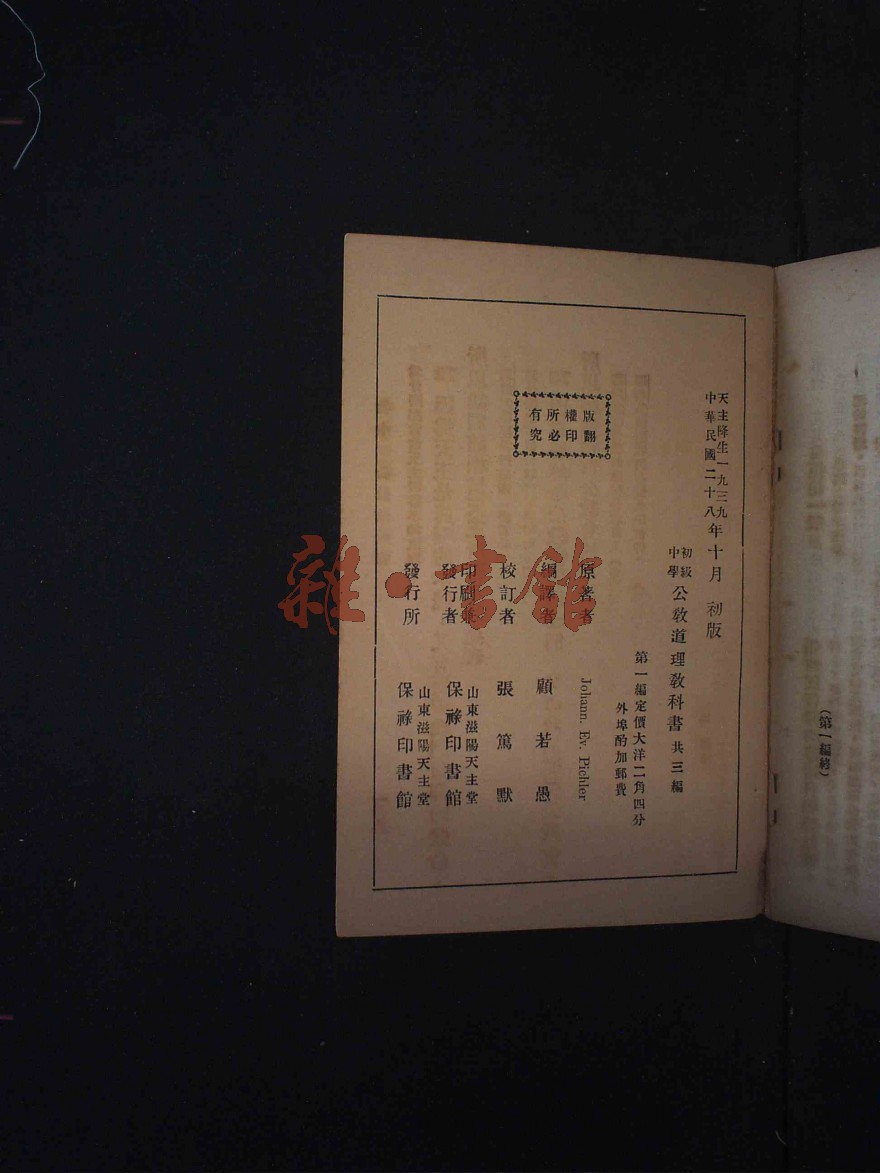 天主降生一九三九
中華民國二十八年十月 初版
初級
中學公教道理教科書 共三編
第一編定價大洋二角四分
外埠酌加郵費
版權所有
翻印必究
原著者 Johann. Ev. Pichler
編譯者 顧若愚
校訂者 張篤默
印刷兼
發行者 山東滋陽天主堂
保祿印書館
發行所 山東滋陽天主堂
保祿印書館
(第一編終)
雜·書館